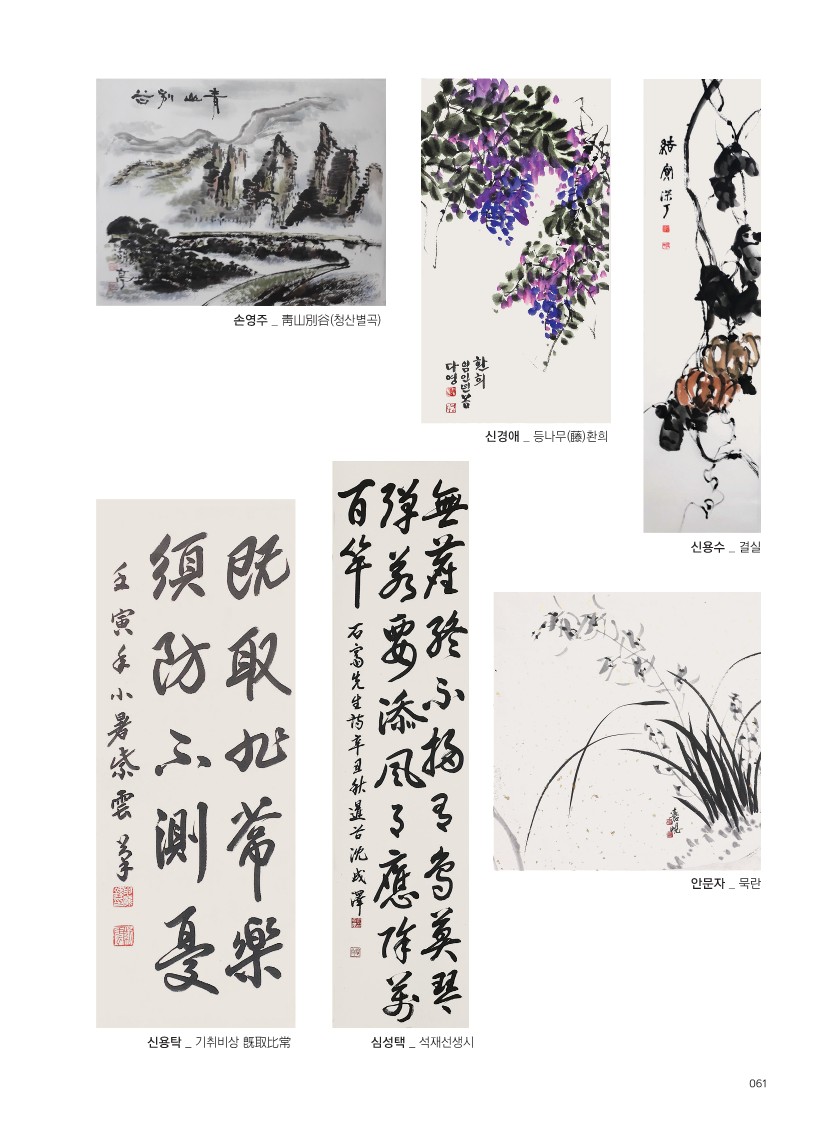 青山別谷
손영주 _ 靑山別谷(청산별곡)
환희
임인년봄
다영
신경애 _ 등나무(藤)환희
結實
신용수 _ 결실
既取非常樂
須防不測憂
壬寅年小暑紫雲
신용탁 _ 기취비상 旣取比常
無塵終不掃有鳥莫琴
彈若要添風月應除萬
百竿
石齋先生詩辛丑秋暹谷沈成澤
심성택 _ 석재선생시
안문자 _ 묵란
061